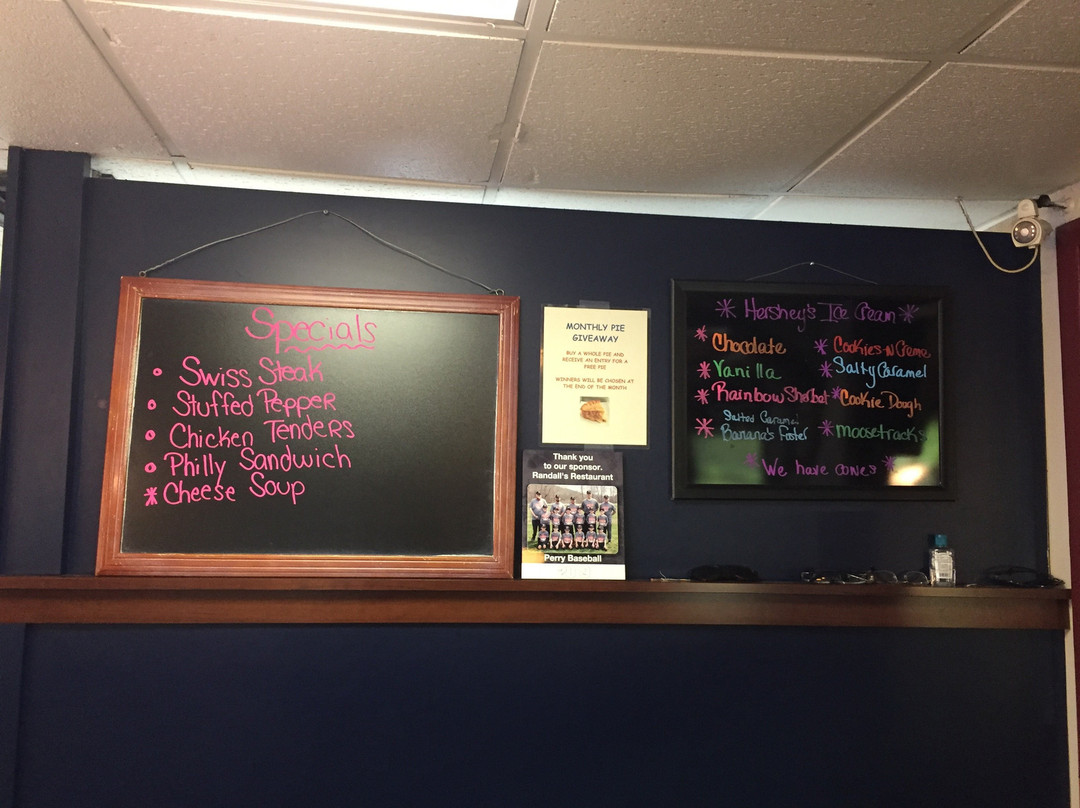 Specials
Swiss Steak
Stuffed Pepper
Chicken Tenders
Philly Sandwich
Cheese Soup
MONTHLY PIE
GIVEAWAY
BUY A WHOLE PIE AND
RECEIVE AN ENTRY FOR A
FREE PIE
WINNERS WILL BE CHOSEN AT
THE END OF THE MONTH
Thank you
to our sponsor.
Randall's Restaurant
Perry Baseball
Hershey's Ice Cream
Chocolate
Vanilla
Rainbow Sherbet
Salted Caramel
Banana's Foster
Cookies-N-Creme
Salty Caramel
Cookie Dough
moosetracks
We have cones